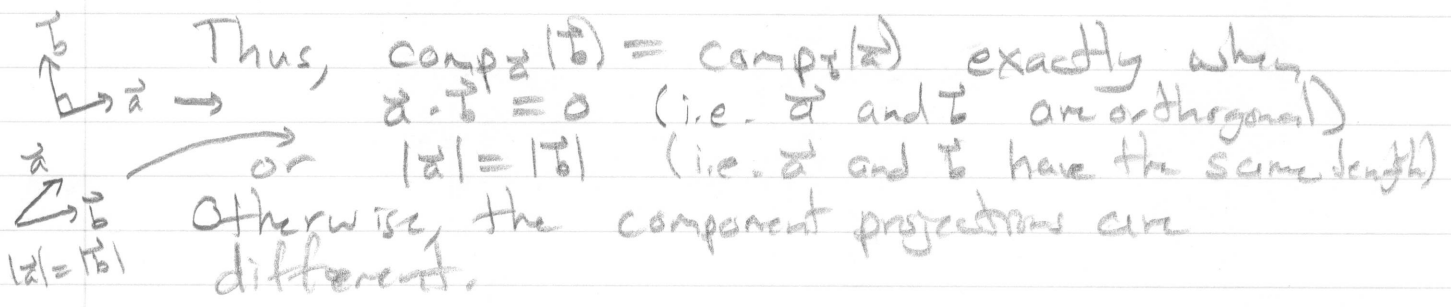 b⃗ Thus, comp_a⃗(b⃗) = comp_b⃗(a⃗) exactly when
a⃗ → a⃗ · b⃗ = 0 (i.e. a⃗ and b⃗ are orthogonal)
a⃗ or |a⃗| = |b⃗| (i.e. a⃗ and b⃗ have the same length)
b⃗ Otherwise, the component projections are
|a⃗| = |b⃗| different.